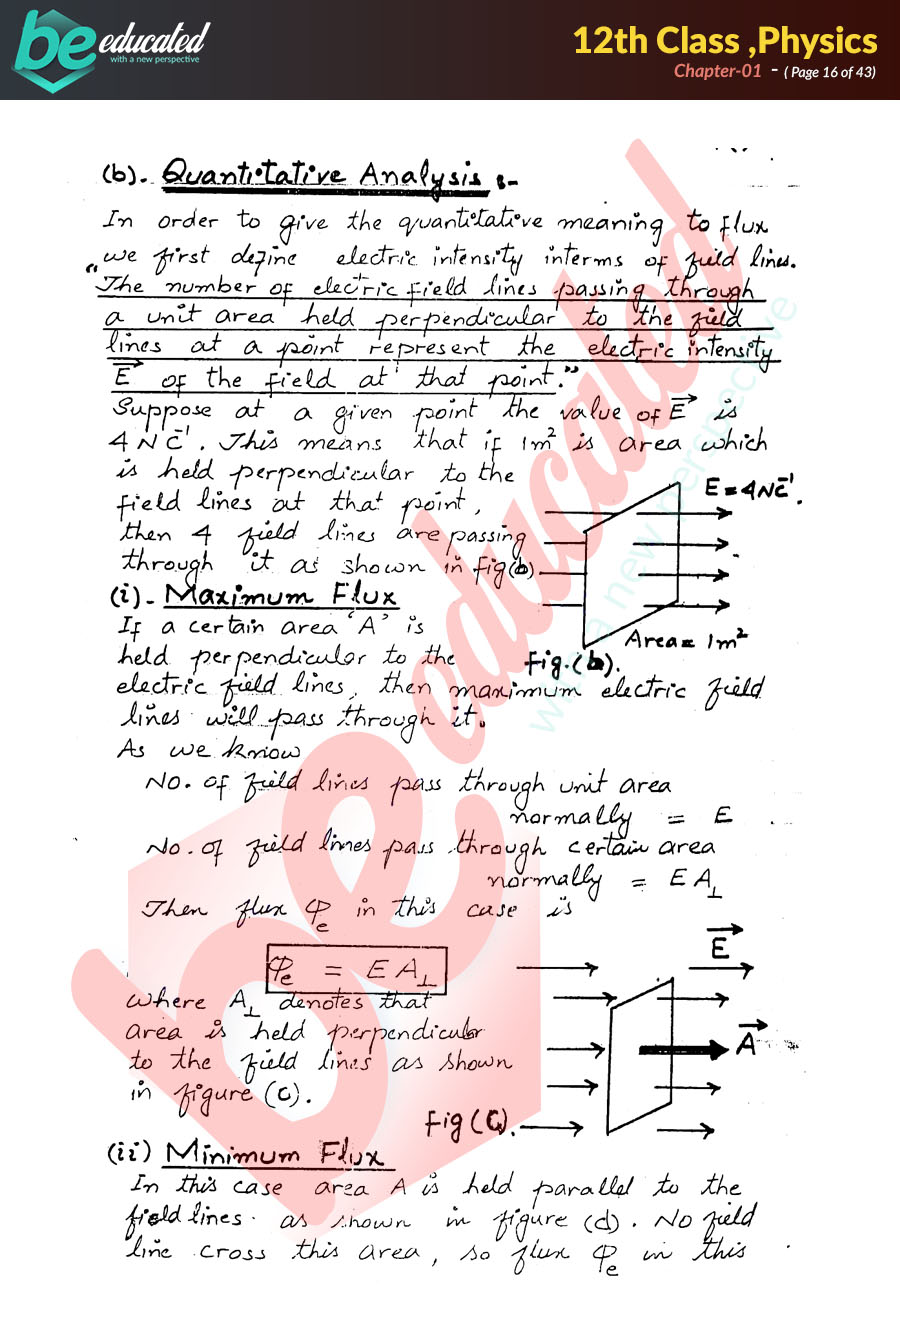 be educated
with a new perspective
12th Class ,Physics
Chapter-01 - ( Page 16 of 43)
(b). Quantitative Analysis :-
In order to give the quantitative meaning to flux
we first define electric intensity interms of field lines.
"The number of electric field lines passing through
a unit area held perpendicular to the field
lines at a point represent the electric intensity
E⃗ of the field at that point."
Suppose at a given point the value of E⃗ is
4 N C⁻¹. This means that if 1m² is area which
is held perpendicular to the
field lines at that point,
then 4 field lines are passing
through it as shown in Fig(b).
E = 4NC⁻¹.
Area = 1m²
Fig.(b).
(i)- Maximum Flux
If a certain area 'A' is
held perpendicular to the
electric field lines, then maximum electric field
lines will pass through it.
As we know
No. of field lines pass through unit area
normally = E
No. of field lines pass through certain area
normally = E A⊥
Then flux φₑ in this case is
φₑ = E A⊥
where A⊥ denotes that
area is held perpendicular
to the field lines as shown
in figure (c).
E⃗
A⃗
Fig (C).
(ii) Minimum Flux
In this case area A is held parallel to the
field lines. as shown in figure (d). No field
line cross this area, so flux φₑ in this
be educated
with a new perspective